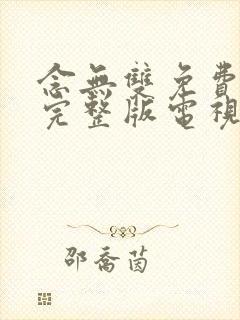 念無雙免費
完整版電視
邵喬茵